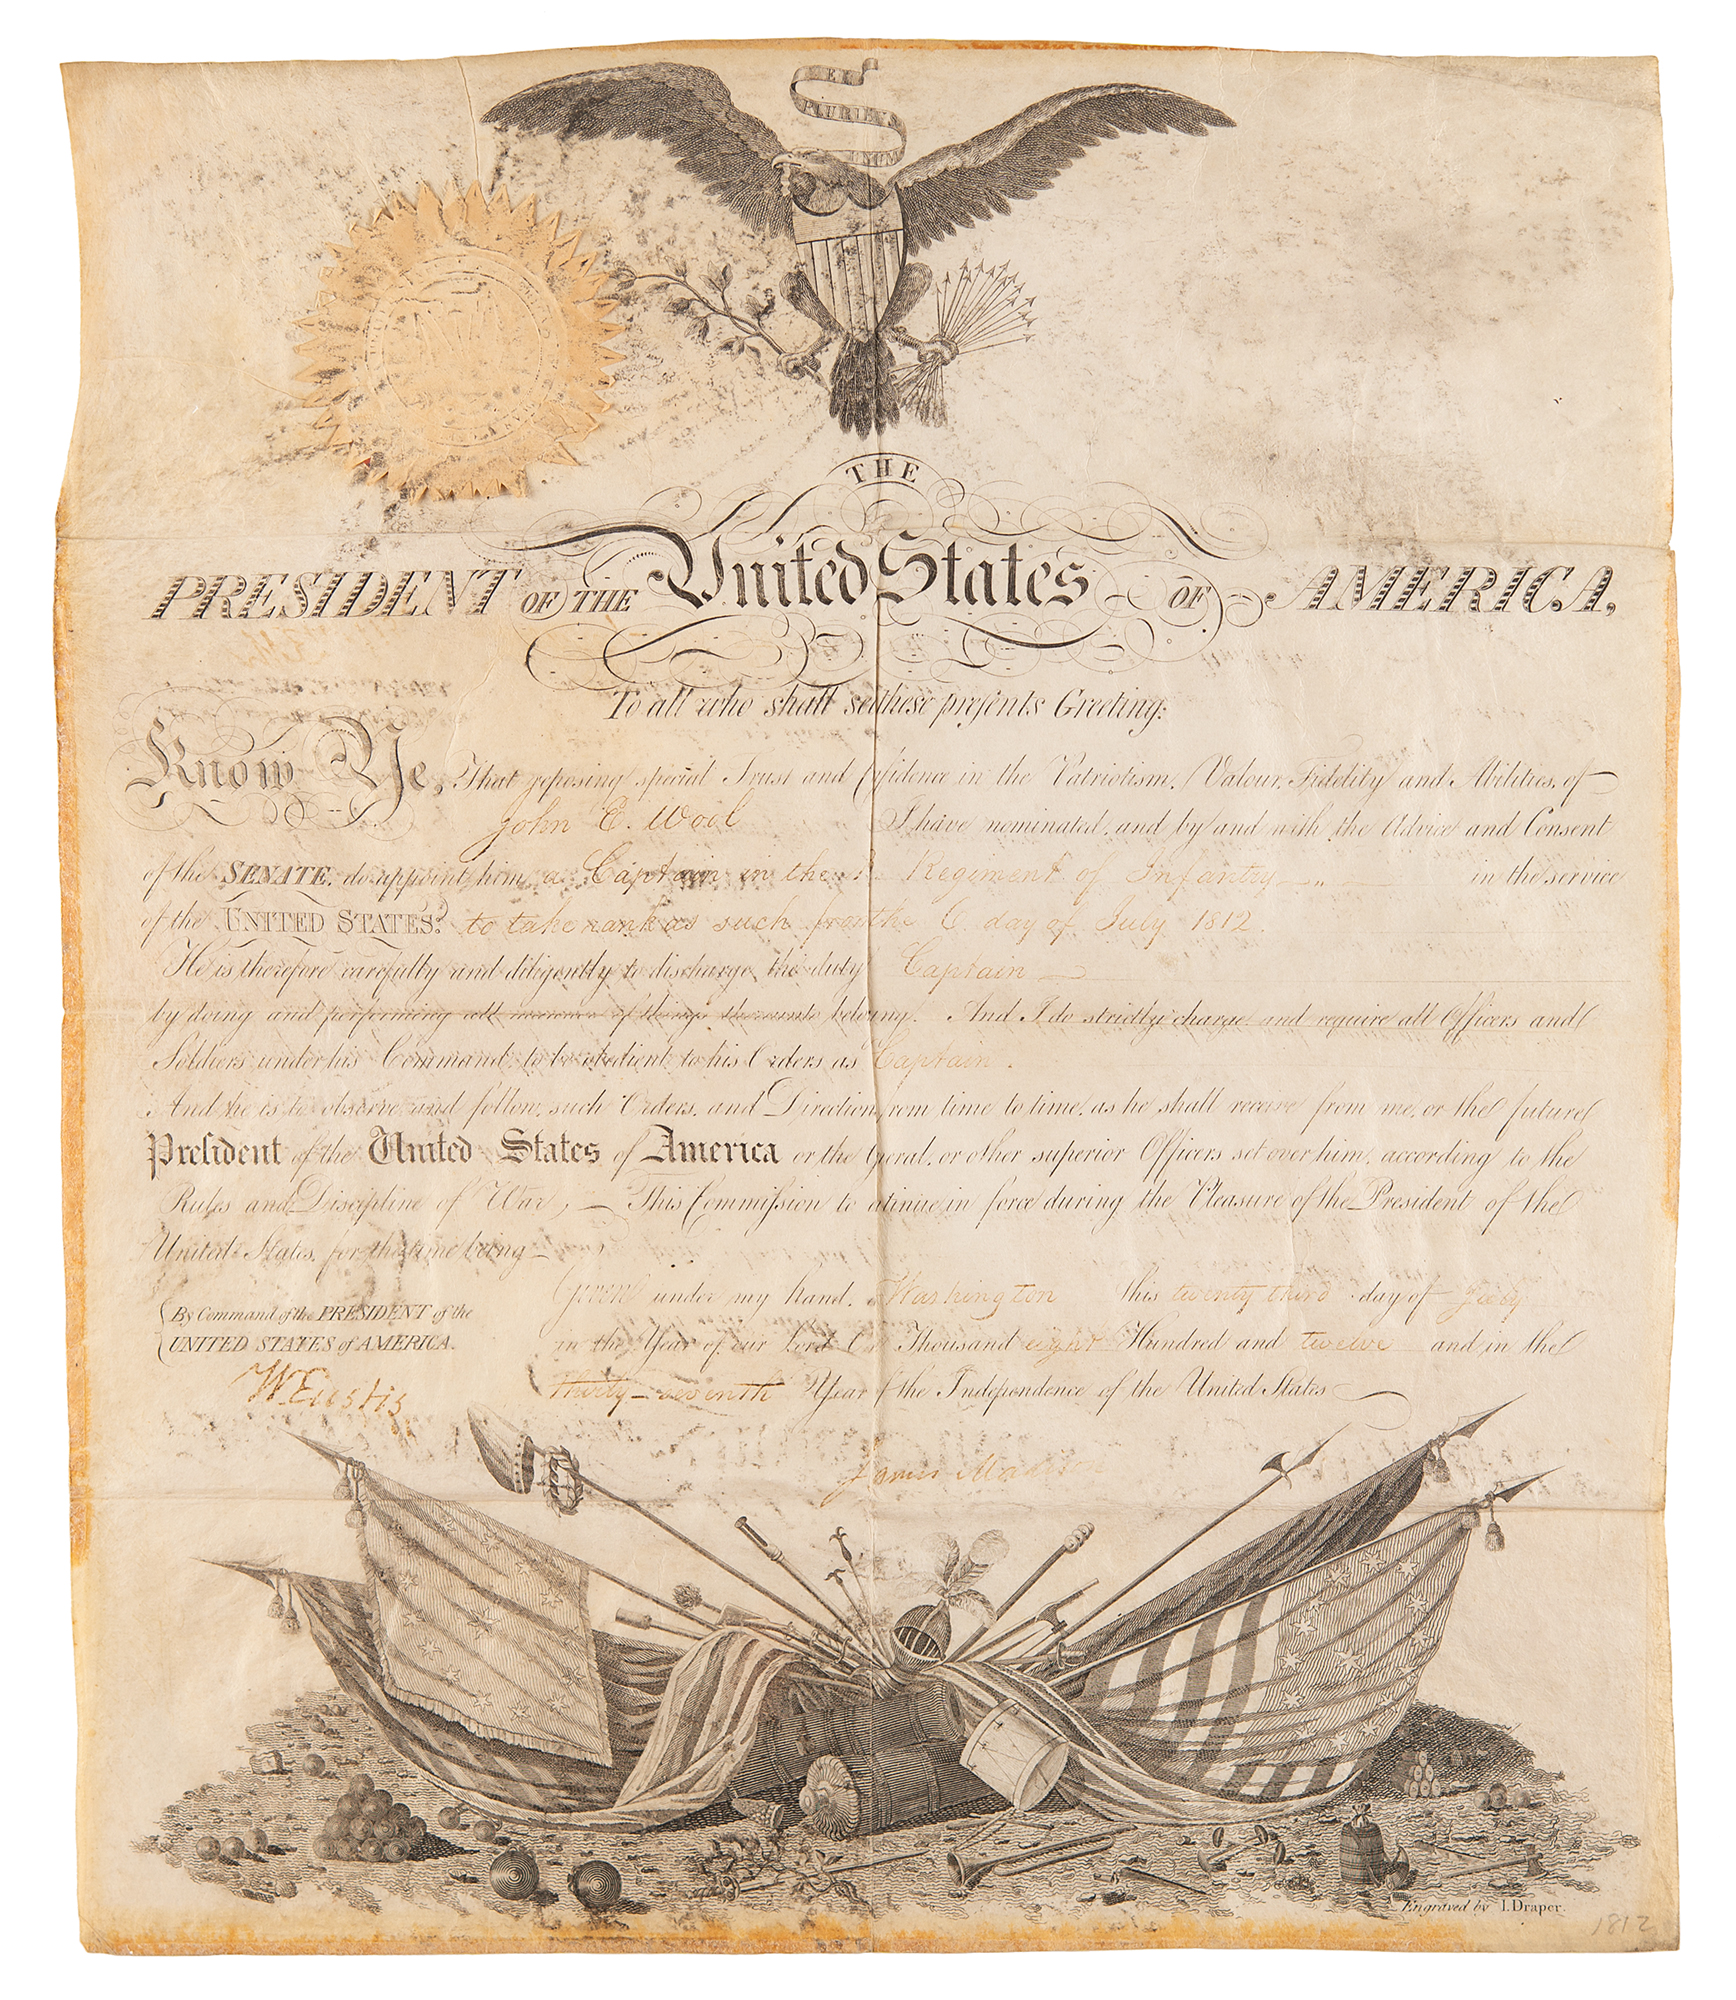 E
PLURIBUS
UNUM
THE
PRESIDENT OF THE United States OF AMERICA,
To all who shall se these presents Greeting:
Know Ye, That reposing special Trust and Cfidence in the Patriotism, Valour, Fidelity and Abilities, of
John E. Wool I have nominated, and by and with the Advice and Consent
of the SENATE, do appoint him a Captain in the Regiment of Infantry in the service
of the UNITED STATES: to take rank as such from the day of July 1812.
He is therefore carefully and diligently to discharge the duty Captain
by doing and performing all manner of things thereunto belonging. And I do strictly charge and require all Officers and
Soldiers under his Command, to be obedient to his Orders as Captain.
And he is to observe and follow, such Orders, and Direction, from time to time, as he shall receive from me, or the future
President of the United States of America or the Gneral, or other superior Officers set over him, according to the
Rules and Discipline of War, This Commission to ctinue in force during the Pleasure of the President of the
United States, for the time being
Given under my hand, Washington this twenty third day of July
By Command of the PRESIDENT of the
UNITED STATES of AMERICA.
in the Year of our Lord Thousand eight Hundred and twelve and in the
W. Eustis
thirty-seventh Year of the Independence of the United States
James Madison
Engraved by I. Draper.
1812